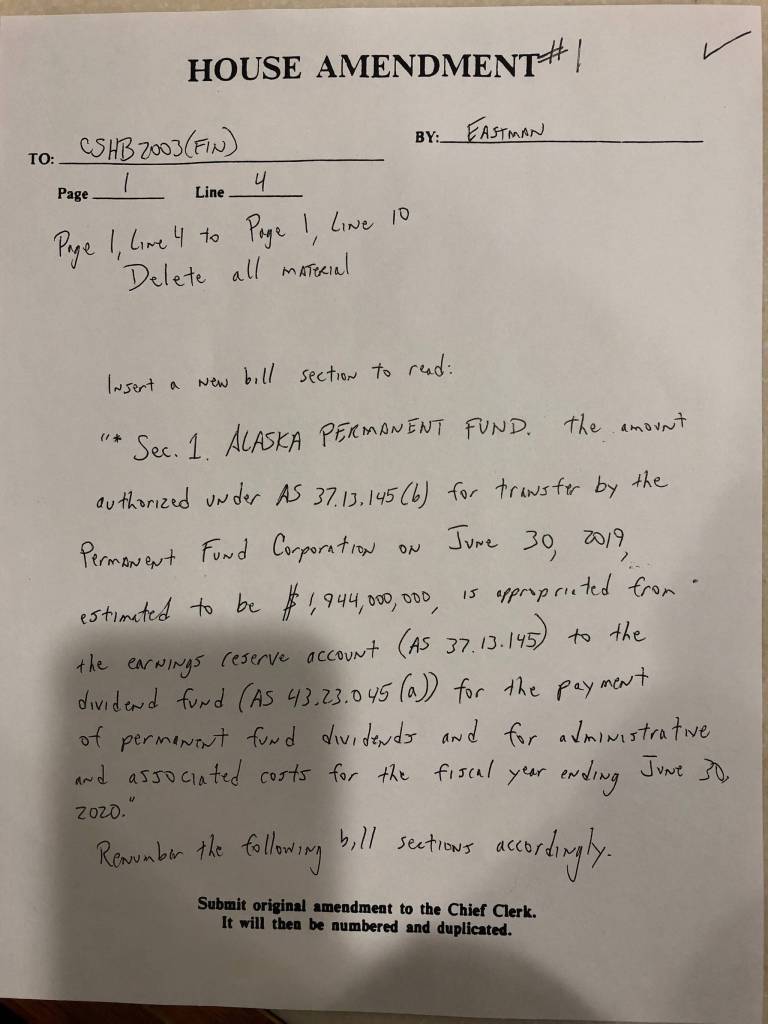 HOUSE AMENDMENT #1
TO: CSHB 2003(FIN) BY: EASTMAN
Page 1 Line 4
Page 1, Line 4 to Page 1, Line 10
Delete all material
Insert a new bill section to read:
"* Sec. 1. ALASKA PERMANENT FUND. the amount
authorized under AS 37.13.145(b) for transfer by the
Permanent Fund Corporation on June 30, 2019,
estimated to be $1,944,000,000, is appropriated from
the earnings reserve account (AS 37.13.145) to the
dividend fund (AS 43.23.045(a)) for the payment
of permanent fund dividends and for administrative
and associated costs for the fiscal year ending June 30,
2020."
Renumber the following bill sections accordingly.
Submit original amendment to the Chief Clerk.
It will then be numbered and duplicated.